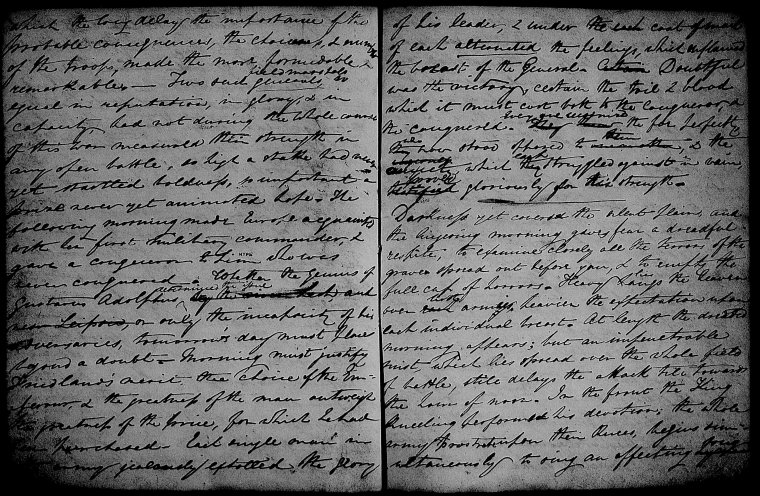 which the long delay, the importance of the
probable consequences, the choiceness, & number
of the troops, made the more formidable &
remarkable. — Two such generals
field marshals
equal in reputation, in glory, & in
capacity, had not during the whole course
of this war measured their strength in
any open battle, so high a stake had never
yet startled boldness, so important a
prize never yet animated hope. The
following morning made Europe acquainted
with her first military commander, &
gave a conqueror to him who was
never conquered. Whether the Genius of
Gustavus Adolphus, by the and
near Leipsic, or only the incapacity of his
adversaries, tomorrow's day must place
beyond a doubt — Morning must justify
Friedland's merit, the choice of the Em-
peror, & the greatness of the man outweigh
the greatness of the price, for which he had
been purchased. Each single man in
the army jealously extolled the glory
of his leader, & under the coat of
of each alternated the feelings, which inflamed
the breast of the General. Doubtful
was the victory, certain the toil & blood
which it must cost both to the conqueror, &
the conquered. the foe perfectly
now stood opposed to them, & the
which they struggled against in vain
gloriously for their strength.
Darkness yet covered the silent plains and
the lingering morning gives fear a dreadful
respite, to examine closely all the terrors of the
graves spread out before you, & to empty the
full cup of horrors. Heavy hangs the Heaven
over army, heavier the expectation upon
each individual breast. At length the dreaded
morning appears; but an impenetrable
mist, which lies spread over the whole field
of battle, still delays the attack till towards
the hour of noon. In the front the King
kneeling performed his devotion; the whole
army prostrate upon their knees, begins sim-
ultaneously to sing an affecting